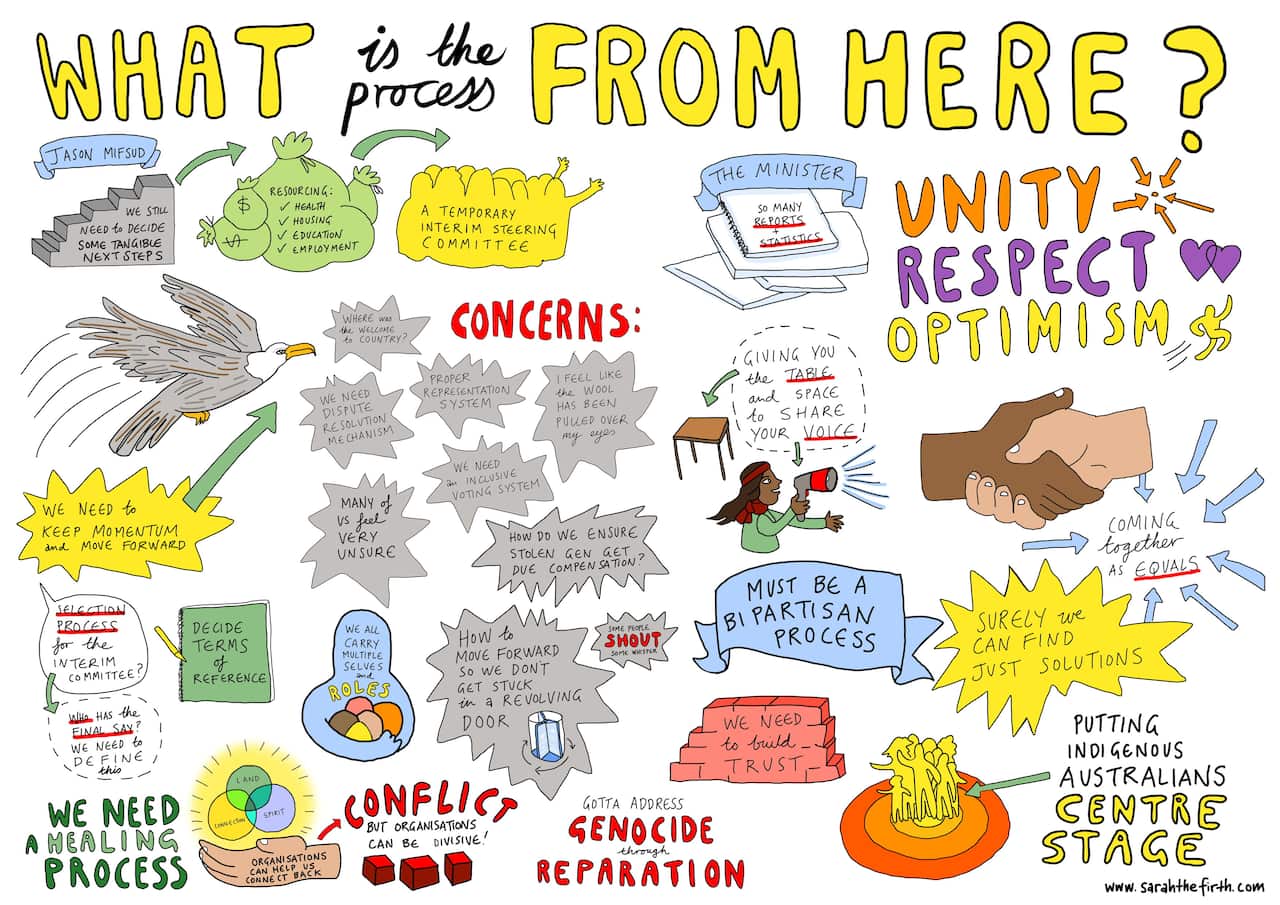 WHAT is the FROM HERE?
process
JASON MIFSUD
WE STILL
NEED to DECIDE
SOME TANGIBLE
NEXT STEPS
$
$
RESOURCING:
✓ HEALTH
✓ HOUSING
✓ EDUCATION
✓ EMPLOYMENT
A TEMPORARY
INTERIM STEERING
COMMITTEE
THE MINISTER
SO MANY
REPORTS
+
STATISTICS
UNITY
RESPECT
OPTIMISM
CONCERNS:
WHERE was
the WELCOME
to COUNTRY?
WE NEED
DISPUTE
RESOLUTION
MECHANISM
PROPER
REPRESENTATION
SYSTEM
I FEEL LIKE
the WOOL
HAS BEEN
PULLED OVER
my eyes
WE NEED
an INCLUSIVE
VOTING SYSTEM
MANY of
US feel
VERY
UNSURE
HOW DO WE ENSURE
STOLEN GEN GET
DUE COMPENSATION?
GIVING YOU
the TABLE
and SPACE
to SHARE
YOUR VOICE
WE NEED to
KEEP MOMENTUM
and MOVE FORWARD
COMING
together
AS EQUALS
SELECTION
PROCESS
for the
INTERIM
COMMITTEE?
WHO HAS the
FINAL SAY?
WE NEED to
DEFINE
this
DECIDE
TERMS
of
REFERENCE
WE ALL
CARRY
MULTIPLE
SELVES
and
ROLES
HOW to
MOVE FORWARD
SO WE DON'T
GET STUCK
in a REVOLVING
DOOR
SOME PEOPLE
SHOUT
SOME WHISPER
MUST BE A
BIPARTISAN
PROCESS
SURELY we
CAN FIND
JUST SOLUTIONS
WE NEED
to build
TRUST
PUTTING
INDIGENOUS
AUSTRALIANS
CENTRE
STAGE
WE NEED
A HEALING
PROCESS
LAND
CONNECTION
SPIRIT
ORGANISATIONS
CAN HELP US
CONNECT BACK
CONFLICT
BUT ORGANISATIONS
CAN BE DIVISIVE!
GOTTA ADDRESS
GENOCIDE
through
REPARATION
www.sarahthefirth.com